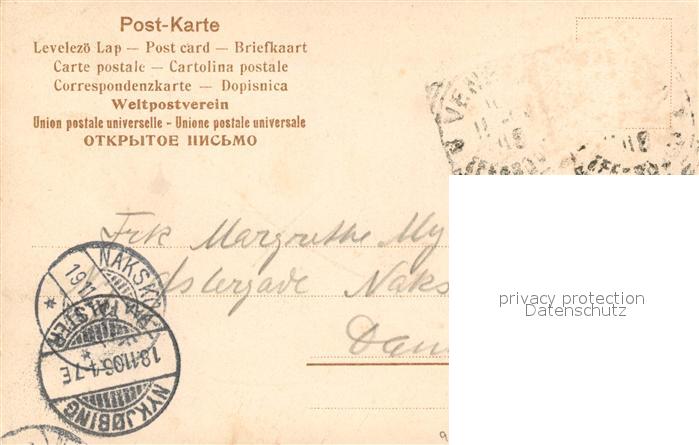 Post-Karte
Levelező Lap — Post card — Briefkaart
Carte postale — Cartolina postale
Correspondenzkarte — Dopisnica
Weltpostverein
Union postale universelle - Unione postale universale
ОТКРЫТОЕ ПИСЬМО
VENE
Frk Margrethe My
Naks
Dan
NAKSK
19.11
FALSTER
18.11.06.4-7E
NYKJØBING
privacy protection
Datenschutz